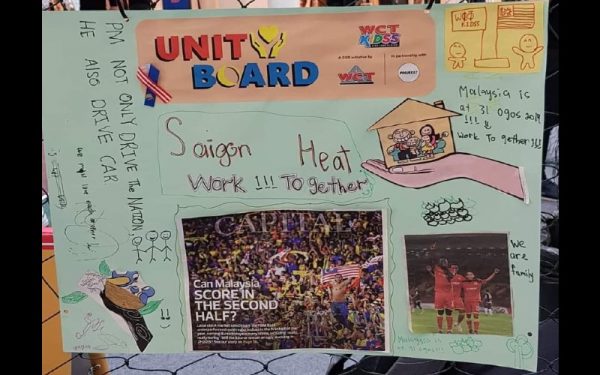 PM NOT ONLY DRIVE The NATION,
HE ALSO DRIVE CAR
UNITY
BOARD
WCT
KIDSS
A CSR initiative by
WCT
In partnership with
WCT
KIDSS
Malaysia is
at 31 Ogos 2019
!!! &
work To gether !!!
Saigon Heat
Work !!! To gether
CAPITAL
Can Malaysia
SCORE IN
THE SECOND
HALF?
We
are
family
Malaysia is
at 31 ogos !!!